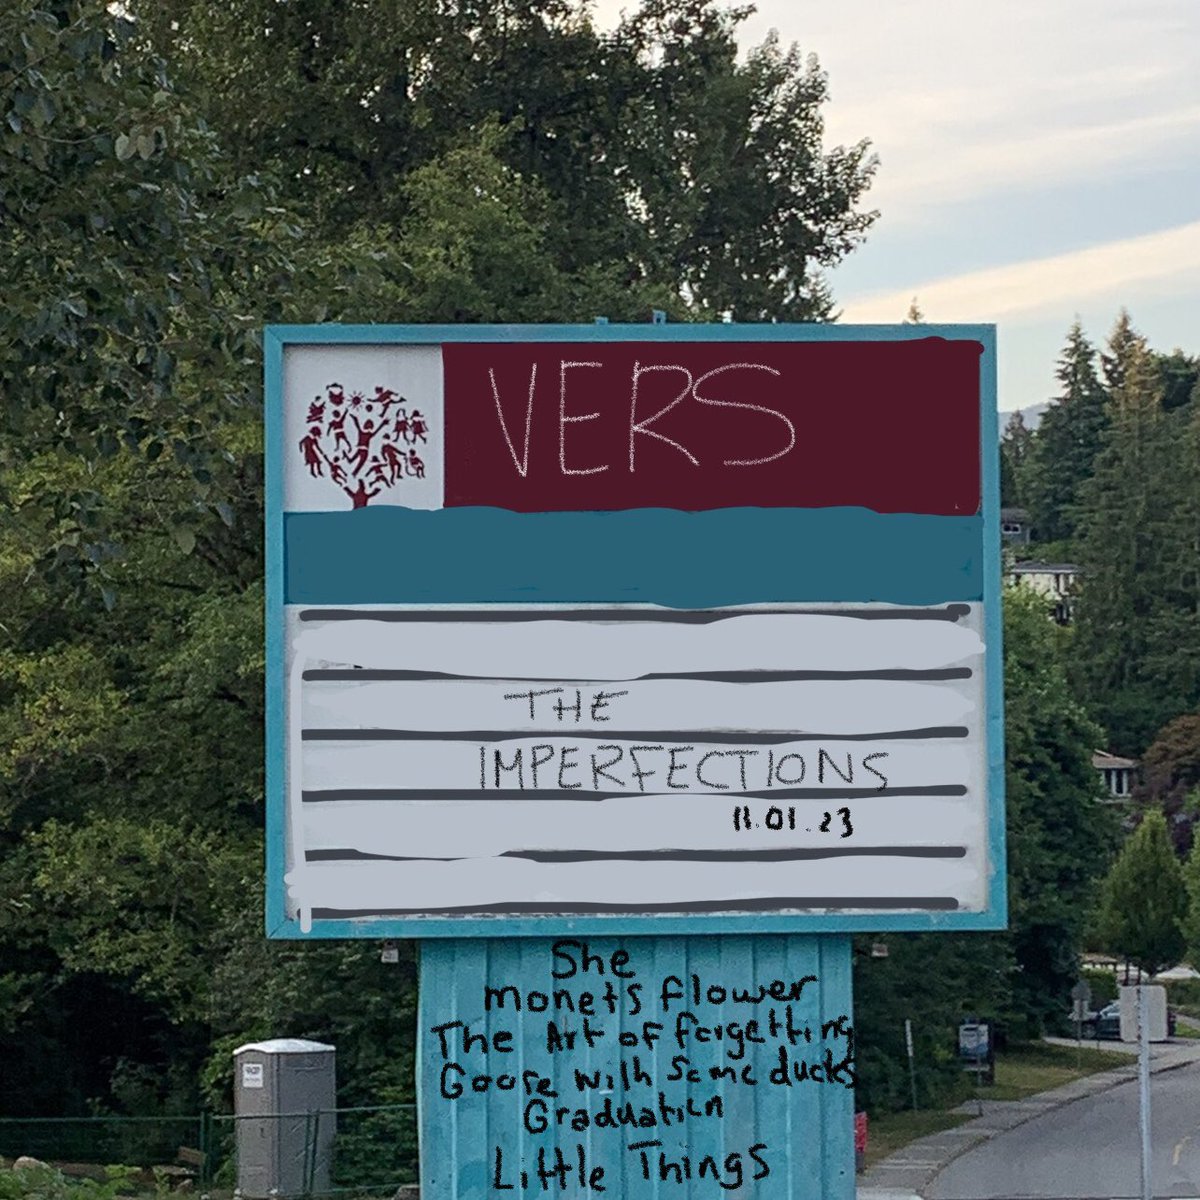 VERS
THE
IMPERFECTIONS
11.01.23
She
monets flower
The Art of forgetting
Goose with some ducks
Graduation
Little Things